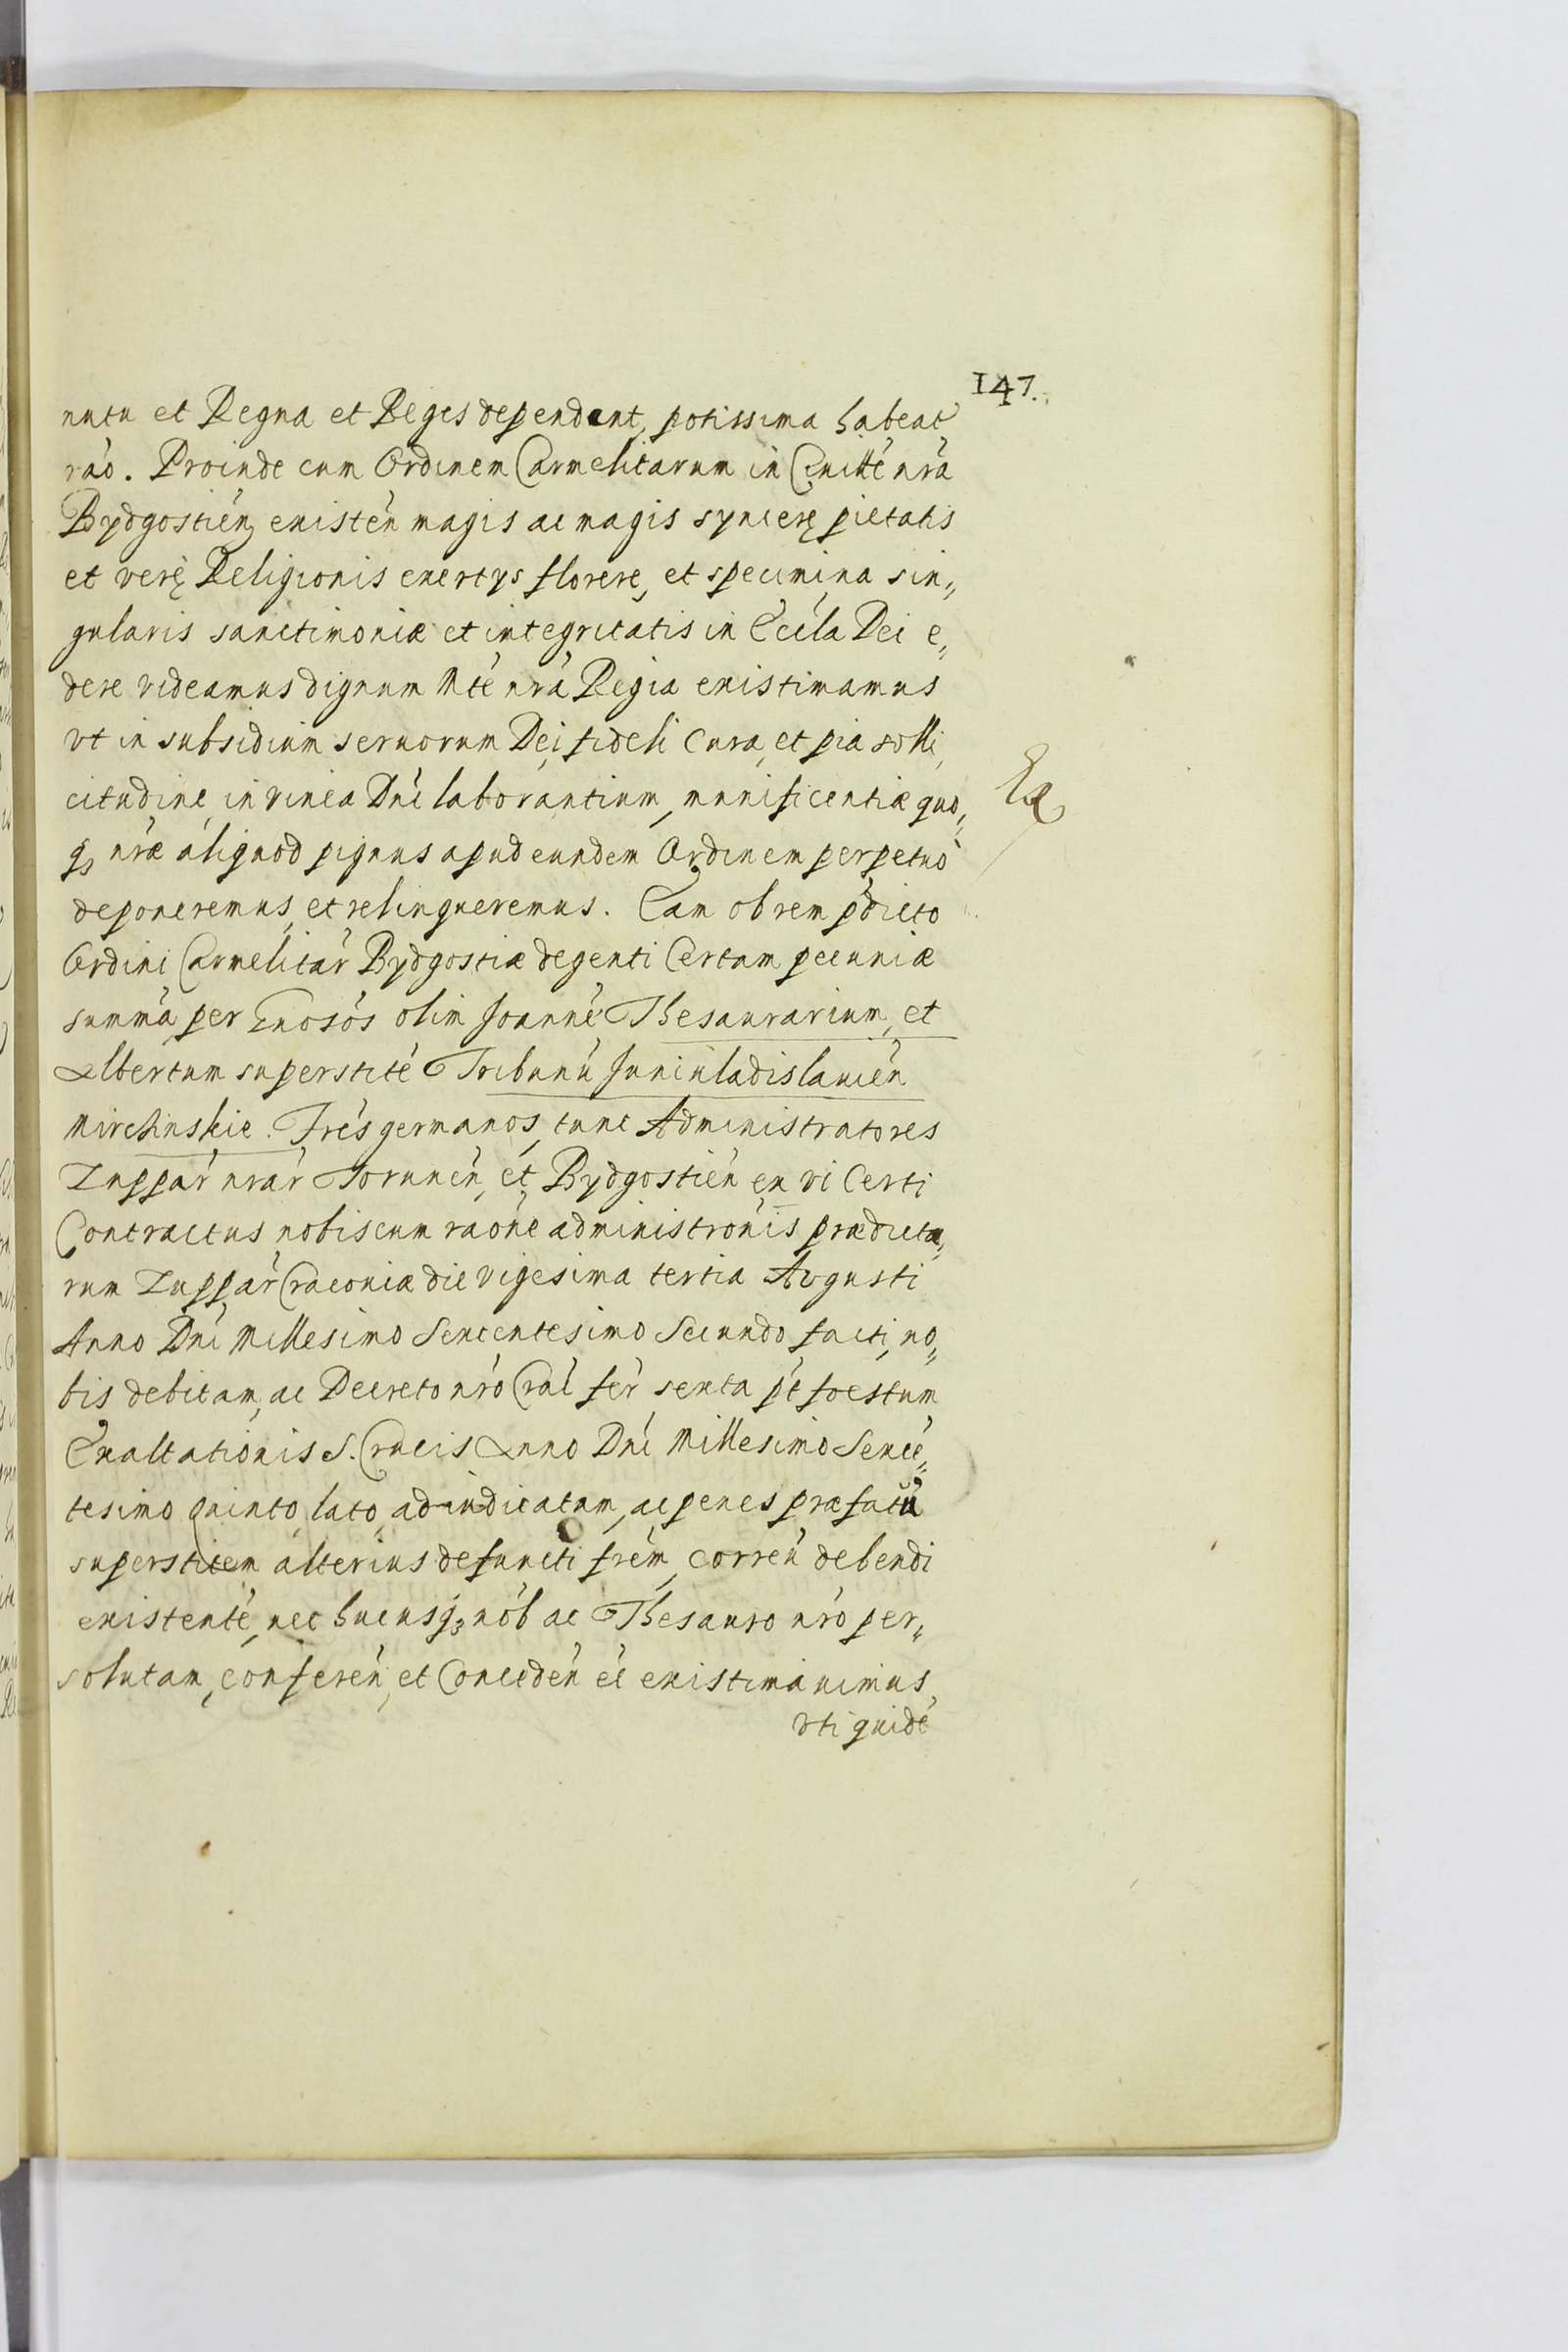 147.
nutu et Regna et Reges dependent, potissima habeat
rao. Proinde cum Ordinem Carmelitarum in Ciuitte nra
Bydgostien existen magis ac magis syncerę pietatis
et verę Religionis exertys florere, et specimina sin„
gularis sanctimoniæ et integritatis in Eccla Dei e„
dere videamus dignum Mte nra Regia existimamus
vt in subsidium seruorum Dei, fideli cura, et pia solli„
citudine, in vinea Dni laborantium, munificentiæ quo„
q3 nræ aliquod pignus apud eundem Ordinem perpetuo
deponeremus, et relinqueremus. Eam ob rem pdicto
Ordini Carmelitar Bydgostiæ degenti Certam pecuniæ
summa, per Gnosos olim Joanne Thesaurarium, et
Albertum superstite Tribunu Juniuladislauien
Mirchinskie. Fres germanos, tunc Administratores
Zuppar nrar Torunen, et Bydgostien ex vi Certi
Contractus nobiscum raone administronis prædicta„
rum Zuppar Cracouiæ die vigesima tertia Augusti
Anno Dni Millesimo Sexcentesimo Secundo facti, no„
bis debitam, ac Decreto nro Crac fer sexta pt foestum
Exaltationis S. Crucis Anno Dni Millesimo Sexce„
tesimo quinto, lato, adiudicatam, ac penes præfatu
superstitem alterius defuncti frem, corren debendi
existente, nec hucusq3 nob ac Thesauro nro per„
solutam, conferen, et Conceden ee existimauimus,
vti quide